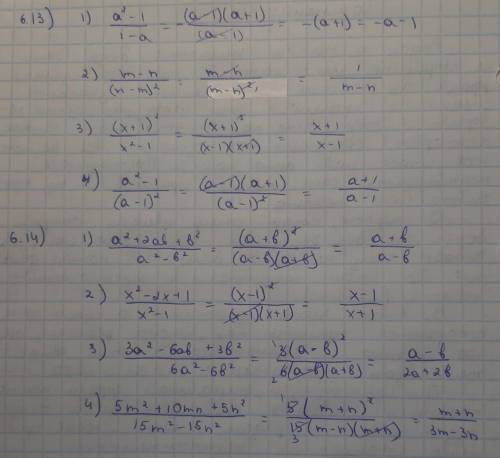 6.13) 1) (a² - 1)/(1 - a) = -((a-1)(a+1))/(a-1) = -(a+1) = -a-1
2) (m-n)/(n-m)² = (m-n)/(m-n)² = 1/(m-n)
3) (x+1)²/(x²-1) = (x+1)²/((x-1)(x+1)) = (x+1)/(x-1)
4) (a²-1)/(a-1)² = ((a-1)(a+1))/(a-1)² = (a+1)/(a-1)
6.14) 1) (a²+2ab+b²)/(a²-b²) = (a+b)²/((a-b)(a+b)) = (a+b)/(a-b)
2) (x²-2x+1)/(x²-1) = (x-1)²/((x-1)(x+1)) = (x-1)/(x+1)
3) (3a²-6ab+3b²)/(6a²-6b²) = ¹3(a-b)²/₂6(a-b)(a+b) = (a-b)/(2a+2b)
4) (5m²+10mn+5n²)/(15m²-15n²) = ¹5(m+n)²/15₃(m-n)(m+n) = (m+n)/(3m-3n)